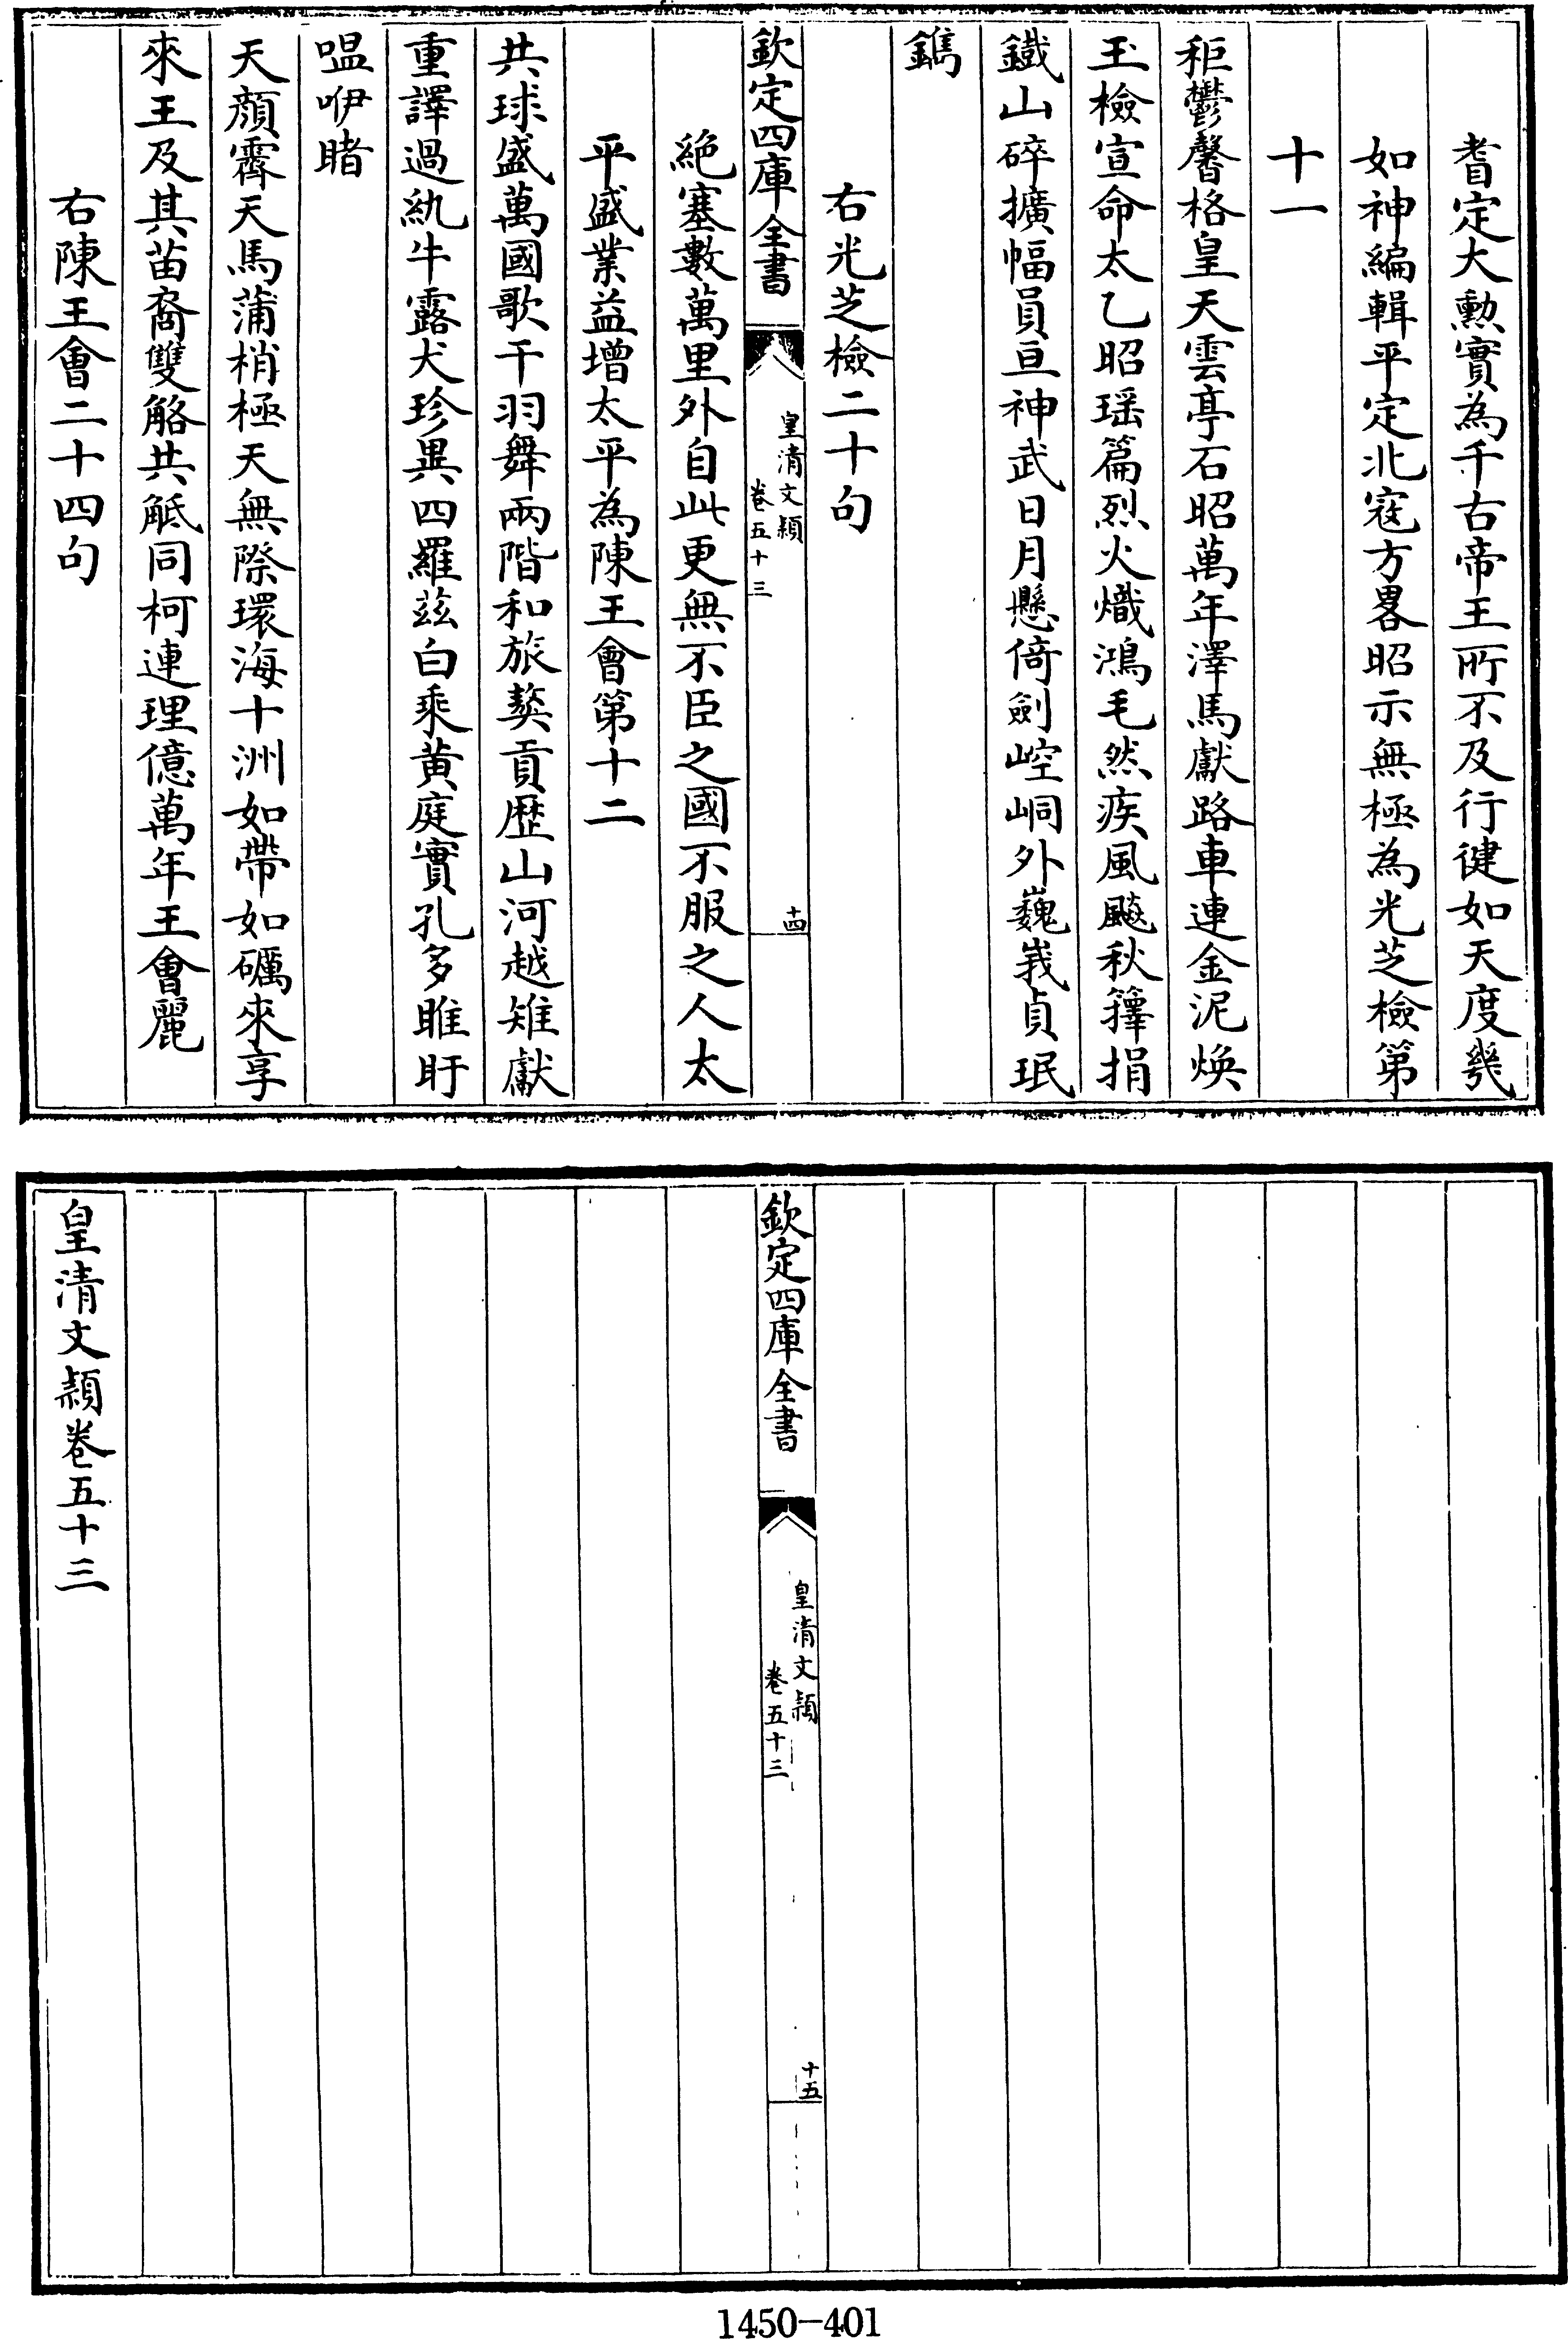 耆定大勲實為千古帝王所不及行健如天度幾
如神編輯平定北寇方畧昭示無極為光芝檢第
十一
秬鬱馨格皇天雲亭石昭萬年澤馬獻路車連金泥煥
玉檢宣命太乙昭瑶篇烈火熾鴻毛然疾風飈秋籜捐
鐵山碎擴幅員亘神武日月懸倚劍崆峒外巍峩貞珉
鐫
右光芝檢二十句
欽定四庫全書
皇清文穎
卷五十三
十四
絶塞數萬里外自此更無不臣之國不服之人太
平盛業益增太平為陳王會第十二
共球盛萬國歌干羽舞兩階和旅獒貢歴山河越雉獻
重譯過紈牛露犬珍異四羅兹白乘黄庭實孔多睢盱
嗢咿睹
天顔霽天馬蒲梢極天無際環海十洲如帶如礪來享
來王及其苗裔雙觡共觝同柯連理億萬年王會麗
右陳王會二十四句
欽定四庫全書
皇清文穎
卷五十三
十五
皇清文穎卷五十三
1450-401